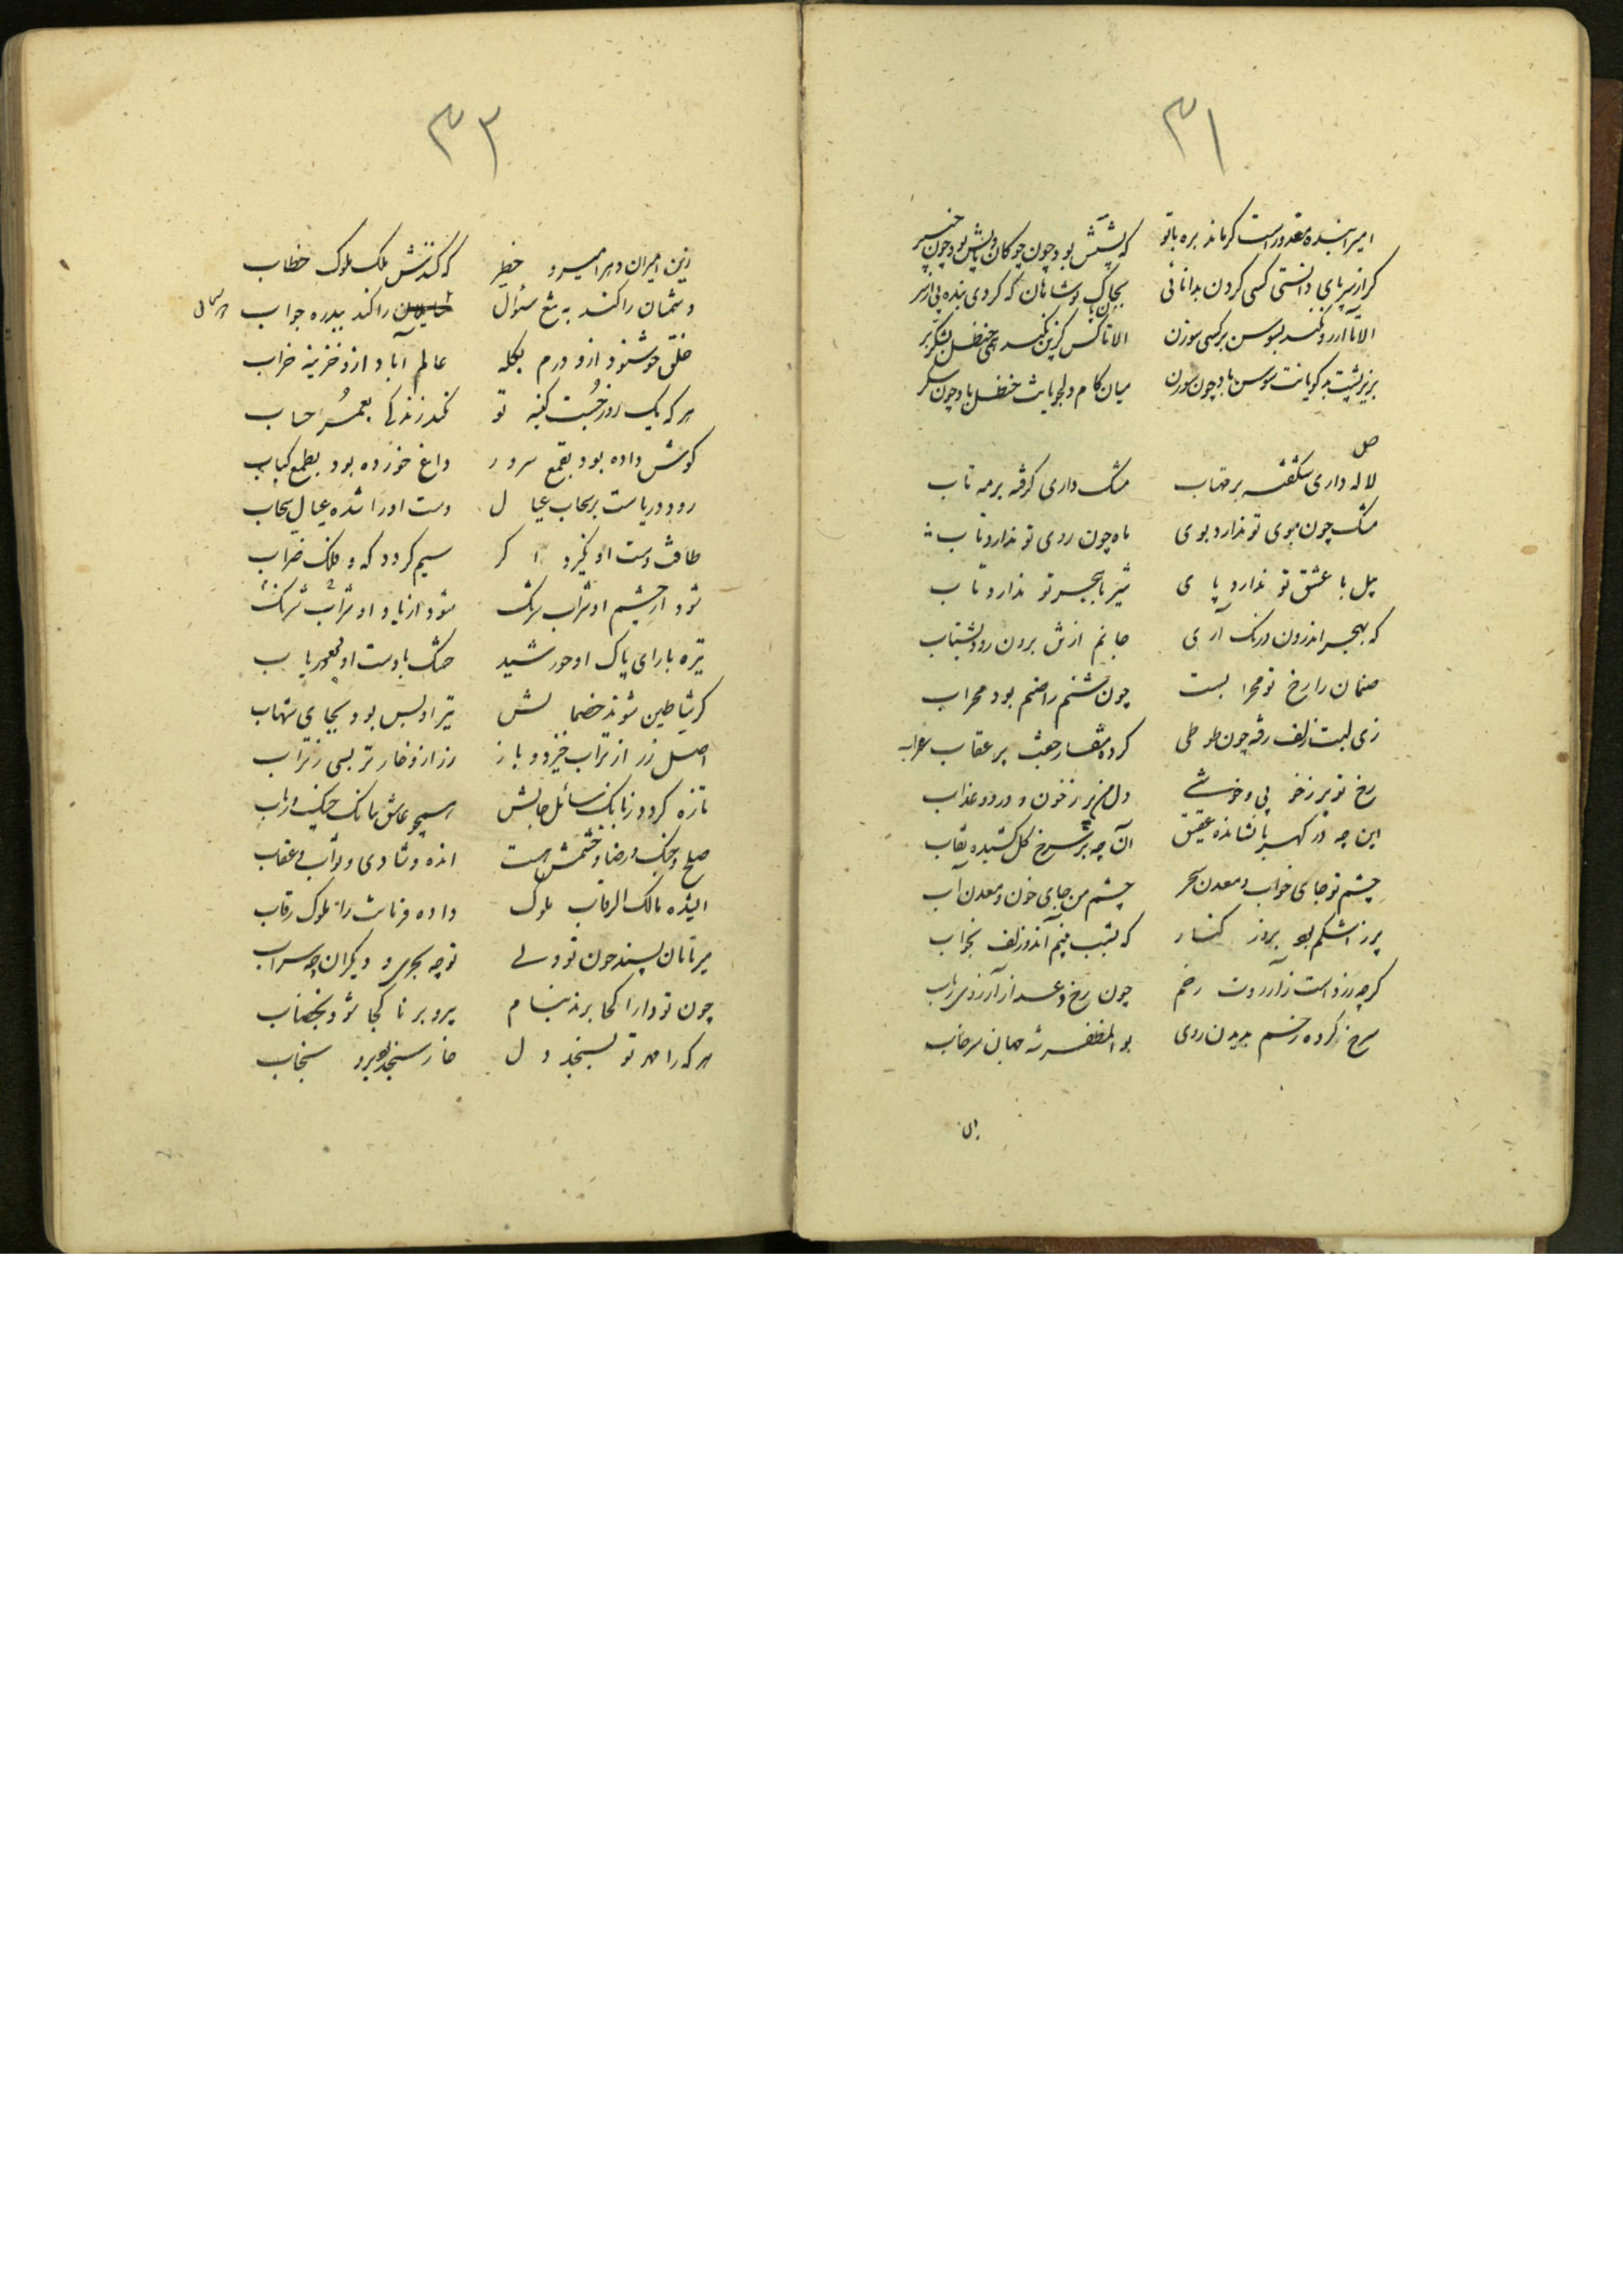 ۳۱
امیرا بنده معذور است گر ماند بره باتو که پشتش بود چون چوکان و پایش بود چون چنبر
گر از سر پای دانستی کسی کردن بدانائی بجای پا بخاک که کردی بنده پی از سر
الا تا آرزو نکند بسوسن بر کسی سوزن الا تا کس گزین نکند همی حنظل بشکر بر
بزیر پشت بدگویانت سوسن باد چون سوزن میان کام دلجویانت حنظل باد چون شکر
لاله داری شکفته بر مهتاب مشک داری گرفته بر مه تاب
مشک چون موی تو ندارد بوی ماه چون روی تو ندارد تاب
پیل با عشق تو ندارد پای شیر با هجر تو ندارد تاب
که بهجر اندرون درنگ آری جانم از تن برون رود بشتاب
صنمان را رخ تو محراب است چون شمنم را صنم بود محراب
زی لبت زلف رفته چون طوطی کرده منقار جفت پر عقاب غراب
رخ تو پر ز خوبی و خوشی دل من پر ز خون و درد و عذاب
این چه در کهربا نشانده عقیق آن چه بر سرخ گل کشیده نقاب
چشم تو جای خواب و معدن سحر چشم من جای خون و معدن آب
پر ز اشکم بود بروز کنار که بشب بینم آن دو زلف بخواب
گرچه زرد است ز آرزوت رخم چون رخ دعد از آرزوی رباب
سرخ کرده رخم بدیدن روی بوالمظفر شه جهان سرخاب
۳۲
زین امیران دهر امیر و خطیر که کندش ملک ملوک خطاب
دشمنان را کند به تیغ سئوال را کند ببدره جواب
خلقی خوشنود ازو درم بگله عالم آباد ازو خزینه خراب
هر که یک روز جست کینه تو نکند زندگی بعمر حساب
گوش داده بود بقمع سرور داغ خورده بود بطمع کباب
رود و دریاست بر سحاب عیال دست او را شده عیال سحاب
طاقت دست او نگیرد اگر سیم گردد که و فلک ضراب
شود از خشم او شراب شرنگ شود از یاد او شراب شرنگ
تیره با رای پاک او خورشید خشک با دست او بود
گر شیاطین شوند خصمانش تیر او بس بود بجای شهاب
اصل زر از تراب خیزد و باز زر ازو خوارتر بسی ز تراب
تازه گردد ز بانگ سائل جانش همچو عاشق ببانگ چنگ و رباب
صلح و جنگ و رضا و خشمش هست انده و شادی و ثواب و عقاب
ایشه مالک الرقاب ملوک داده فرمانت را ملوک رقاب
میر نامان بسند چون تو ولی تو چه بحری و دیگران چه سراب
چون تو دارا کجا برند بنام پیر و برنا کجا شود بخضاب
هر که را مهر تو بسنجد دل خار سنجد بود برو سنجاب